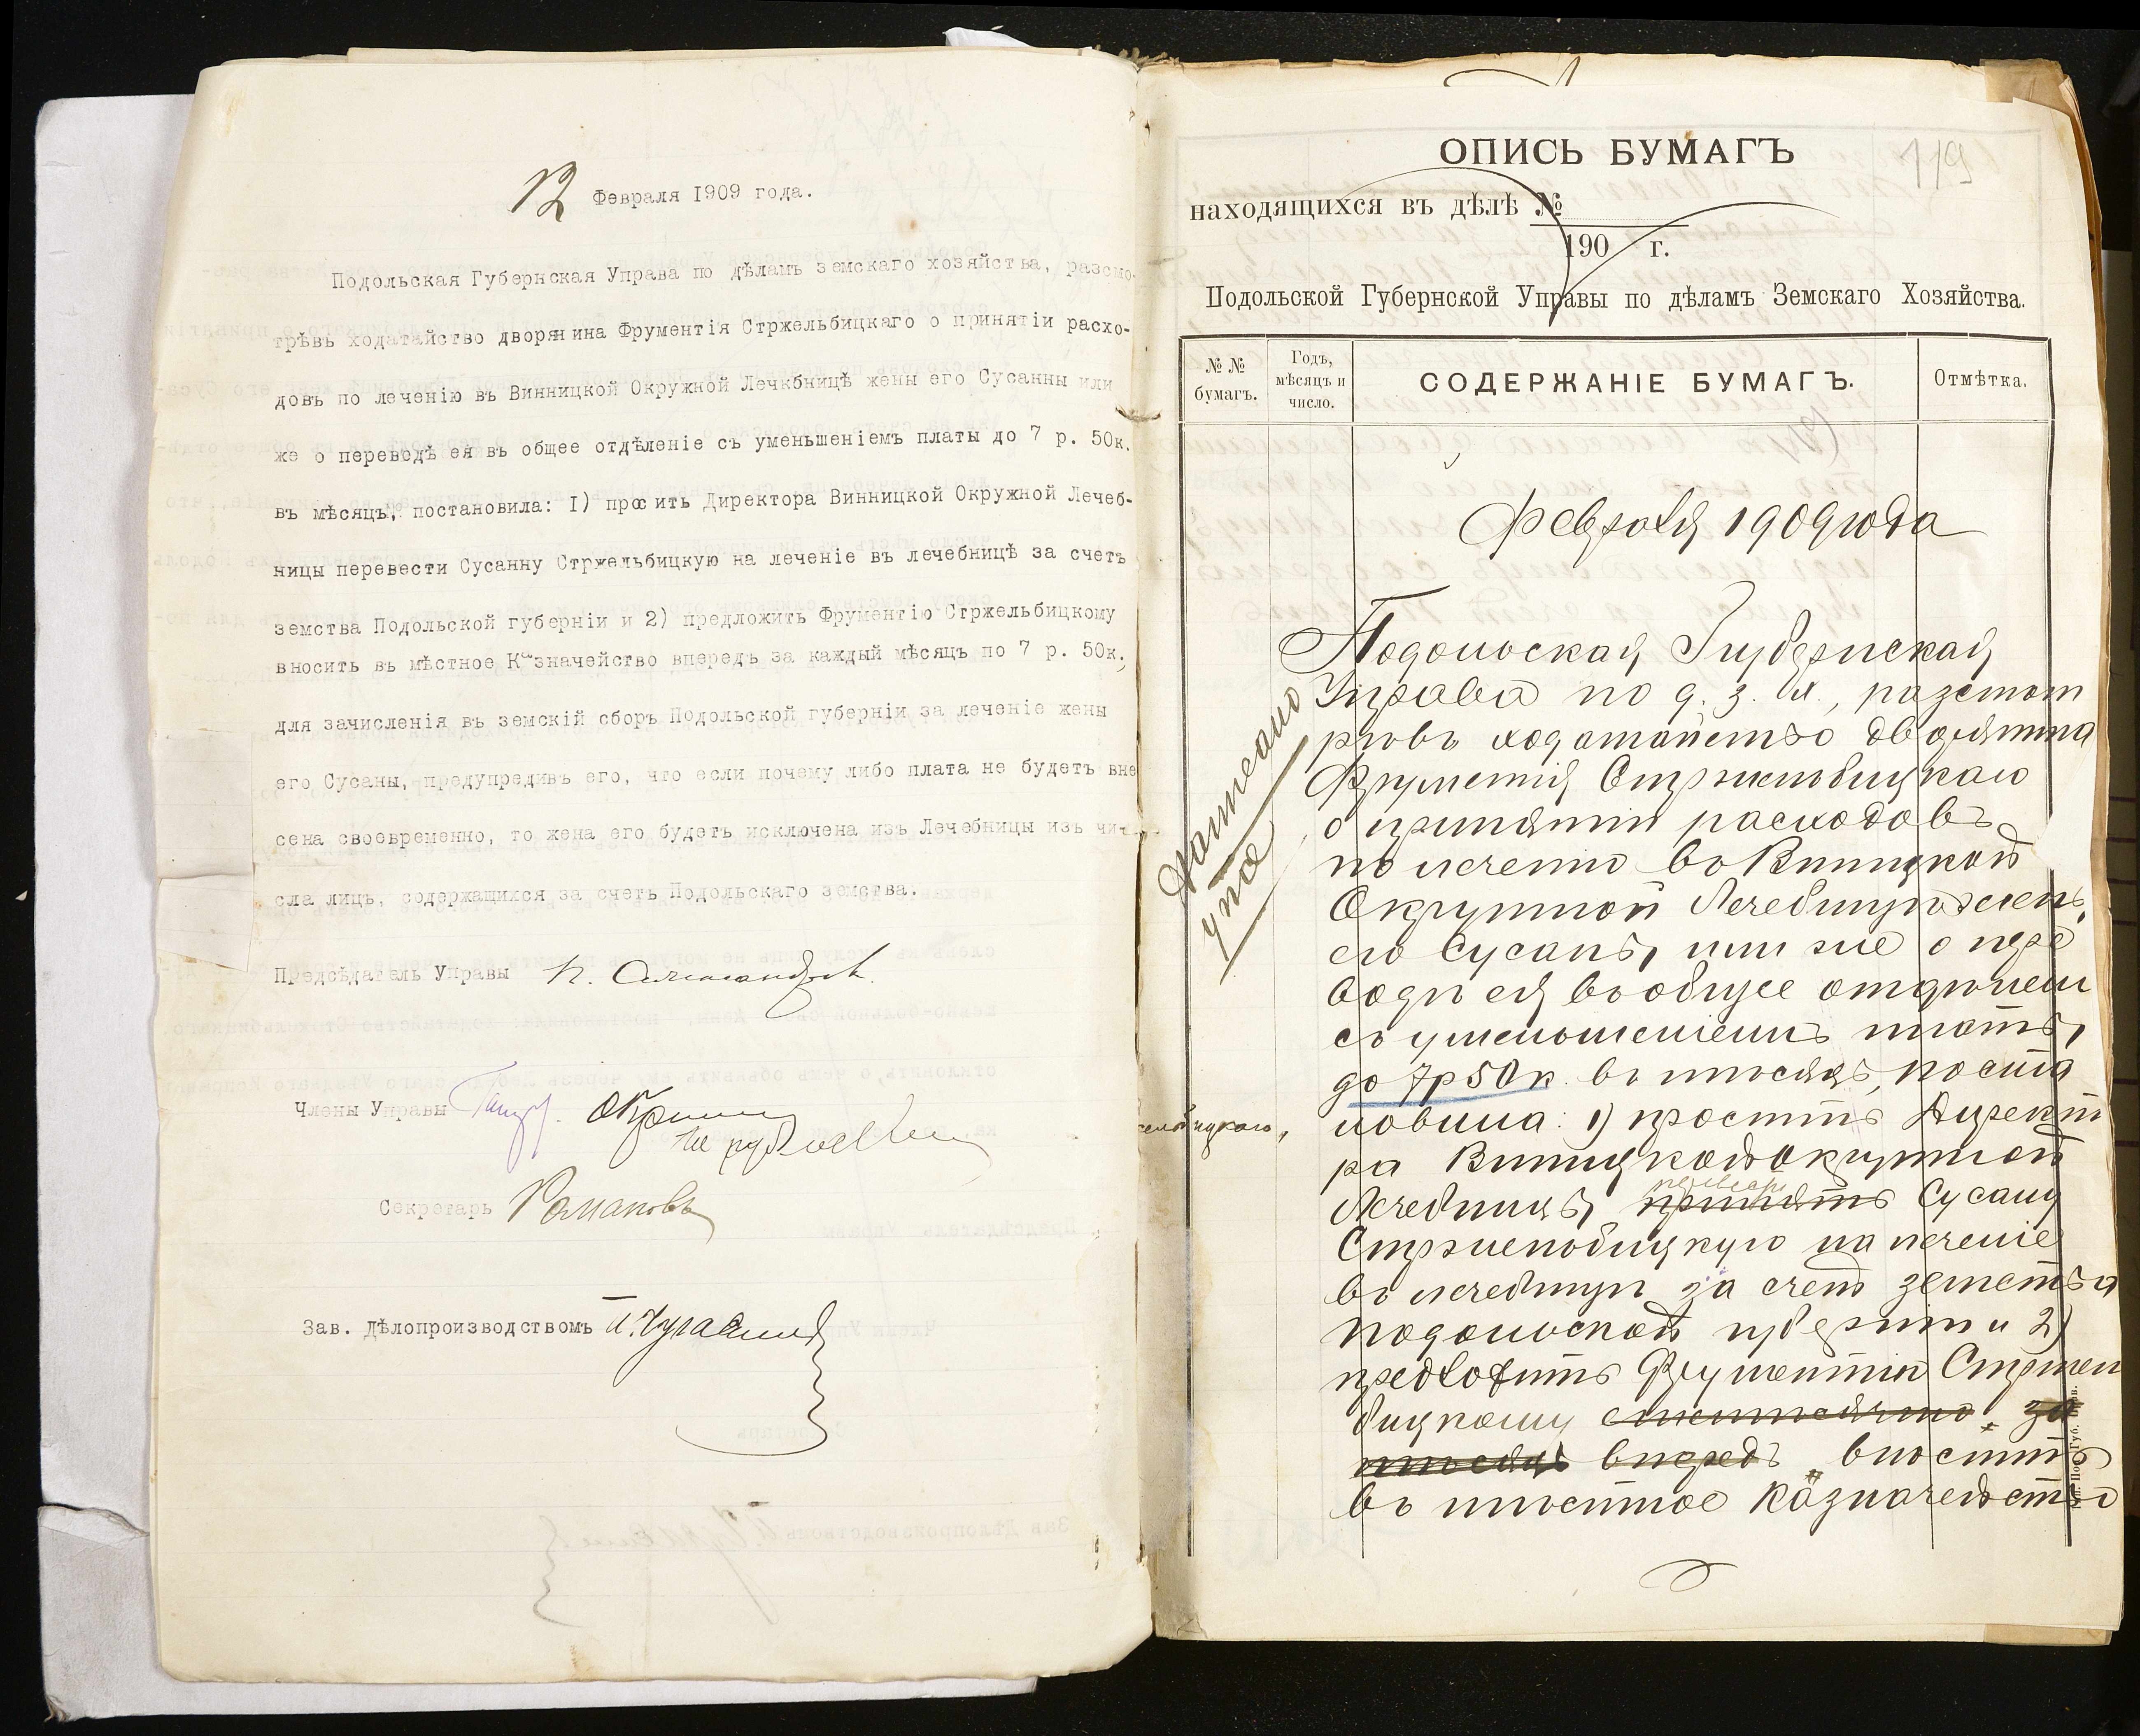 12 Февраля 1909 года.
Подольская Губернская Управа по дѣламъ земскаго хозяйства, разсмо-
трѣвъ ходатайство дворянина Фрументія Стржельбицкаго о принятіи расхо-
довъ по леченію въ Винницкой Окружной Лечкбницѣ жены его Сусанны или
же о переводѣ ея въ общее отдѣленіе съ уменьшеніемъ платы до 7 р. 50к.
въ мѣсяцъ, постановила: I) просить Директора Винницкой Окружной Лечеб-
ницы перевести Сусанну Стржельбицкую на леченіе въ лечебницѣ за счетъ
земства Подольской губерніи и 2) предложить Фрументію Стржельбицкому
вносить въ мѣстное Казначейство впередъ за каждый мѣсяцъ по 7 р. 50к.,
для зачисленія въ земскій сборъ Подольской губерніи за леченіе жены
его Сусаны, предупредивъ его, что если почему либо плата не будетъ вне
сена своевременно, то жена его будетъ исключена изъ Лечебницы изъ чи-
сла лицъ, содержащихся за счетъ Подольскаго земства.
Предсѣдатель Управы
Члены Управы
Секретарь Романовъ
Зав. Дѣлопроизводствомъ
119
ОПИСЬ БУМАГЪ
находящихся въ дѣлѣ №
190 г.
Подольской Губернской Управы по дѣламъ Земскаго Хозяйства.
№ № бумагъ.
Годъ, мѣсяцъ и число.
СОДЕРЖАНІЕ БУМАГЪ.
Отмѣтка.
Февраля 1909 года
Подольская Губернская
Управа по д. з. х., разсмот
рѣвъ ходатайство дворянина
Фрументія Стржельбицкаго
о принятіи расходовъ
по леченію въ Винницкой
Окружной Лечебницѣ жены
его Сусаны, или же о пере
водѣ ея въ общее отдѣлені
съ уменьшеніемъ платы,
до 7р50к. въ мѣсяцъ, поста
новила: 1) просить Директ
ра Винницкой Окружной
Лечебницы, принять перевести Сусану
Стржельбицкую на леченіе
въ лечебницѣ за счетъ земства
Подольской губерніи и 2)
предложить Фрументію Стржел
бицкому ежемѣсячно за
мѣсяцъ впередъ вносить
въ мѣстное Казначейство